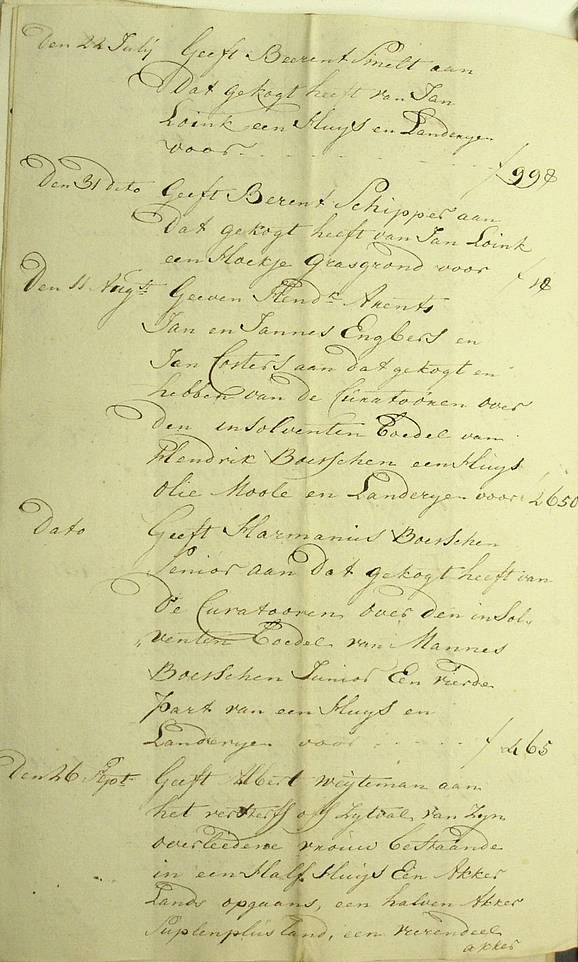 Den 22 July Geeft Beerent Smelt aan
Dat gekogt heeft van Jan
Loink een Huys en Landeryen
voor - - - - - - - - ƒ 998
Den 31 dito Geeft Berent Schipper aan
Dat gekogt heeft van Jan Loink
een Hoekje Grasgrond voor ƒ 18
Den 11 Augst Geeven Hendr Arents
Jan en Jannes Engbers en
Jan Costers aan dat gekogt en
hebben van de Curatooren over
den insolventen Boedel van
Hendrik Boerschen een Huys
olie Moole en Landeryen voor 2650
Dato Geeft Harmanius Boerschen
Senior aan Dat gekogt heeft van
De Curatooren over den insol„
„venten Boedel van Mannes
Boerschen Junior Een vierde
part van een Huys en
Landeryen voor - - - - - ƒ 465
Den 26 Sept Geeft Albert Weyteman aan
het versterf off Zytval van Zyn
overleedene vrouw bestaande
in een Half Huys Een Akker
Lands opgaans, een halven Akker
land, een veerendeel
akker